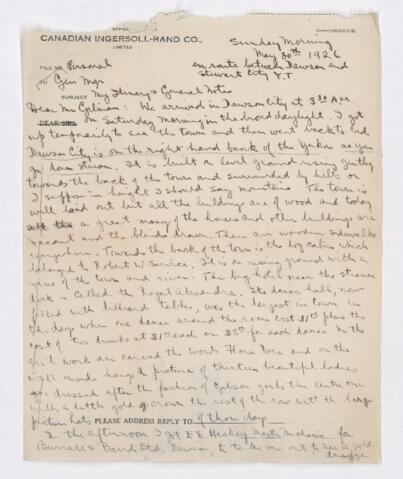 OFFICE
CANADIAN INGERSOLL-RAND CO.,
LIMITED
Sunday Morning
May 30th 1926
FILE NO. Personal
en route between Dawson and
TO Gen Mgr
Stewart City Y.T.
SUBJECT My Itinerary & General Notes
Dear Mr : We arrived in Dawson City at 3 30 A.M.
DEAR SIRS on Saturday Morning in the broad daylight. I got
up temporarily to see the town and then went back to bed
Dawson City is on the right hand bank of the Yukon as you
go down stream. It is built on level ground rising gently
towards the back of the town and surrounded by hills or
I suppose in height I should say mountains. The town is
well laid out but all the buildings are of wood and today
a great many of the houses and other buildings are
vacant and the blinds drawn. There are wooden sidewalks
everywhere. Toward the back of the town is the log cabin which
belonged to Robert W. Service. It is on rising ground with a
view of the town and river. The big hotel near the steamer
dock is called the Royal Alexandra. Its dance hall, now
filled with billiard tables, was the largest in town in
the days when one dance around the room cost $1 00 plus the
cost of two drinks at $1 00 each or $3 00 for each dance. In the
grill work are carved the words Flora Dora and on the
walls inside hangs a picture of thirteen beautiful ladies
dressed after the fashion of Gibson girls the centre one
with a little gold crown the rest of the row with the large
picture hats PLEASE ADDRESS REPLY TO of those days.
In the afternoon I got E.E. Hickey Mastr Mechanic for
Burrall & Baird Ltd, Dawson, to take me out to see a gold
dredge